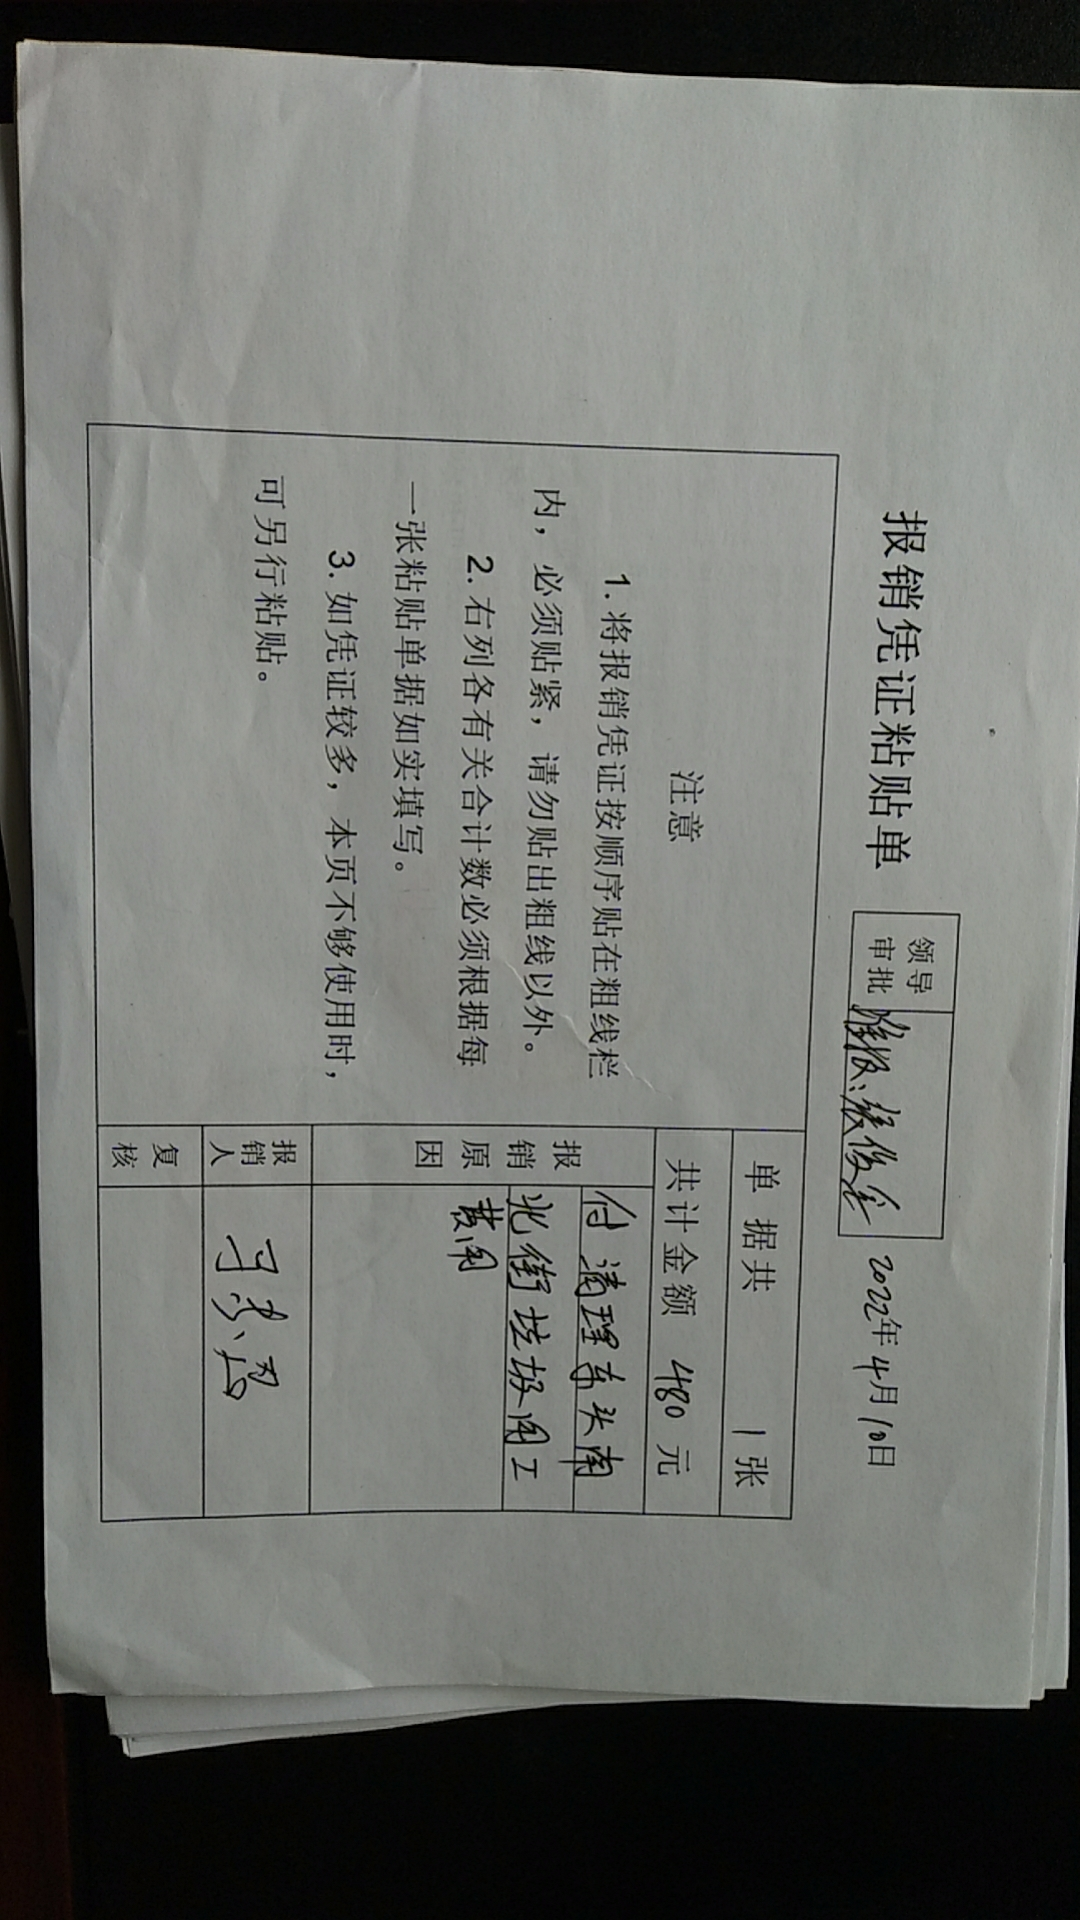 报销凭证粘贴单
领导
审批
准报:张俊全
2022年4月10日
注意
1. 将报销凭证按顺序贴在粗线栏
内，必须贴紧，请勿贴出粗线以外。
2. 右列各有关合计数必须根据每
一张粘贴单据如实填写。
3. 如凭证较多，本页不够使用时，
可另行粘贴。
单据共 1张
共计金额 480元
报销原因
付清理东头南
北街垃圾用工
费用
报销人
复核